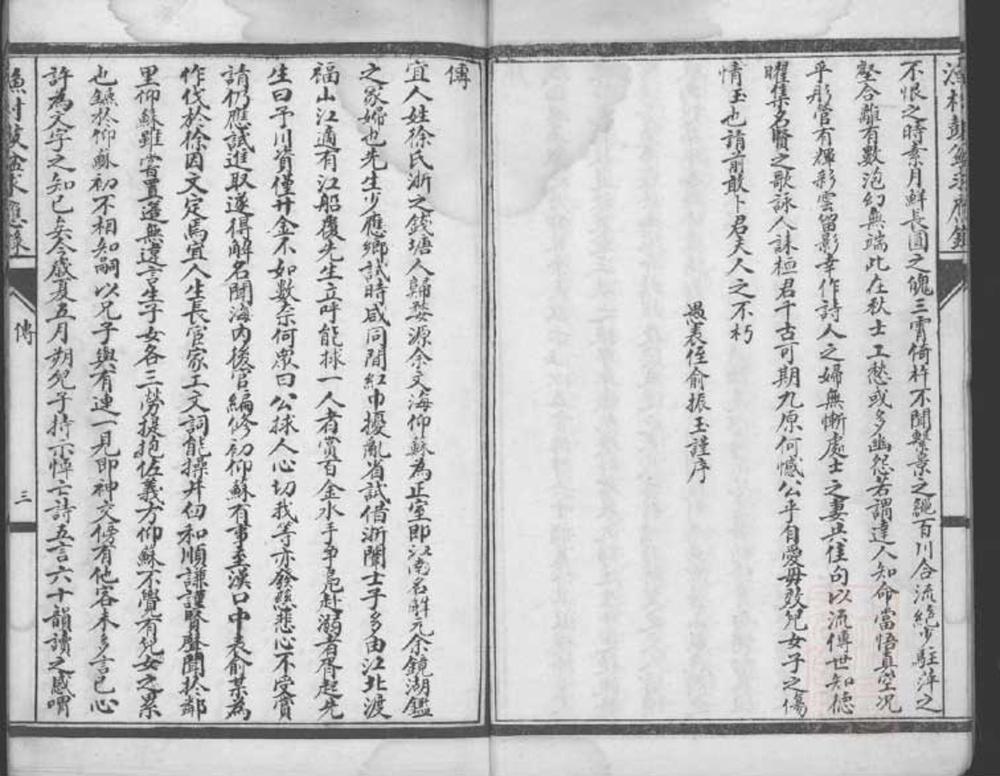 不恨之時素月鮮長圓之魄三霄倚杵不聞繫景之繩百川合流絕少駐萍之
壑合離有數泡幻無端此在秋士工愁或多幽怨若謂達人知命當悟真空況
乎彤管有輝彩雲留影幸作詩人之婦無慚處士之妻共佳句以流傳世知德
曜集名賢之歌詠人誄桓君千古可期九原何憾公乎自愛毋效兒女子之傷
情玉也請前敢卜君夫人之不朽
愚表侄俞振玉謹序
傳
宜人姓徐氏浙之錢塘人歸婺源余文海仰蘇為正室即江南名解元余鏡湖鑑
之冢婦也先生少應鄉試時咸同間紅巾擾亂省試借浙闈士子多由江北渡
福山江適有江船覆先生立呼能捄一人者賞百金水手爭鳧赴溺者胥起先
生曰予川資僅廿金不如數奈何眾曰公捄人心切我等亦發慈悲心不受賞
請仍應試進取遂得解名聞海內後官編修初仰蘇有事至漢口中表俞某為
作伐於徐因文定焉宜人生長官家工文詞能操井臼和順謙謹賢聲聞於鄰
里仰蘇雖嘗置簉無違言生子女各三勞提抱佐義方仰蘇不覺有兒女之累
也鑣於仰蘇初不相知嗣以兄子與有連一見即神交傍有他客未多言已心
許為文字之知已矣今歲夏五月朔兒子持示悼亡詩五言六十韻讀之感喟
傳
三